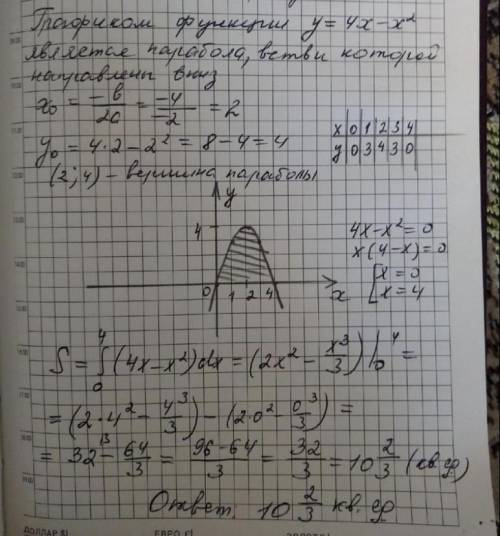 Графиком функции y = 4x - x²
является парабола, ветви которой
направлены вниз
x₀ = -b/2a = -4/-2 = 2
y₀ = 4·2 - 2² = 8 - 4 = 4
x | 0 | 1 | 2 | 3 | 4
y | 0 | 3 | 4 | 3 | 0
(2; 4) - вершина параболы
y
4
0 1 2 4 x
4x - x² = 0
x(4 - x) = 0
[x = 0
x = 4
S = ∫₀⁴ (4x - x²)dx = (2x² - x³/3) |₀⁴ =
= (2·4² - 4³/3) - (2·0² - 0³/3) =
= 32\³ - 64/3 = 96-64/3 = 32/3 = 10 2/3 (кв. ед)
Ответ: 10 2/3 кв. ед
ДОЛЛАР $|
ЕВРО €|